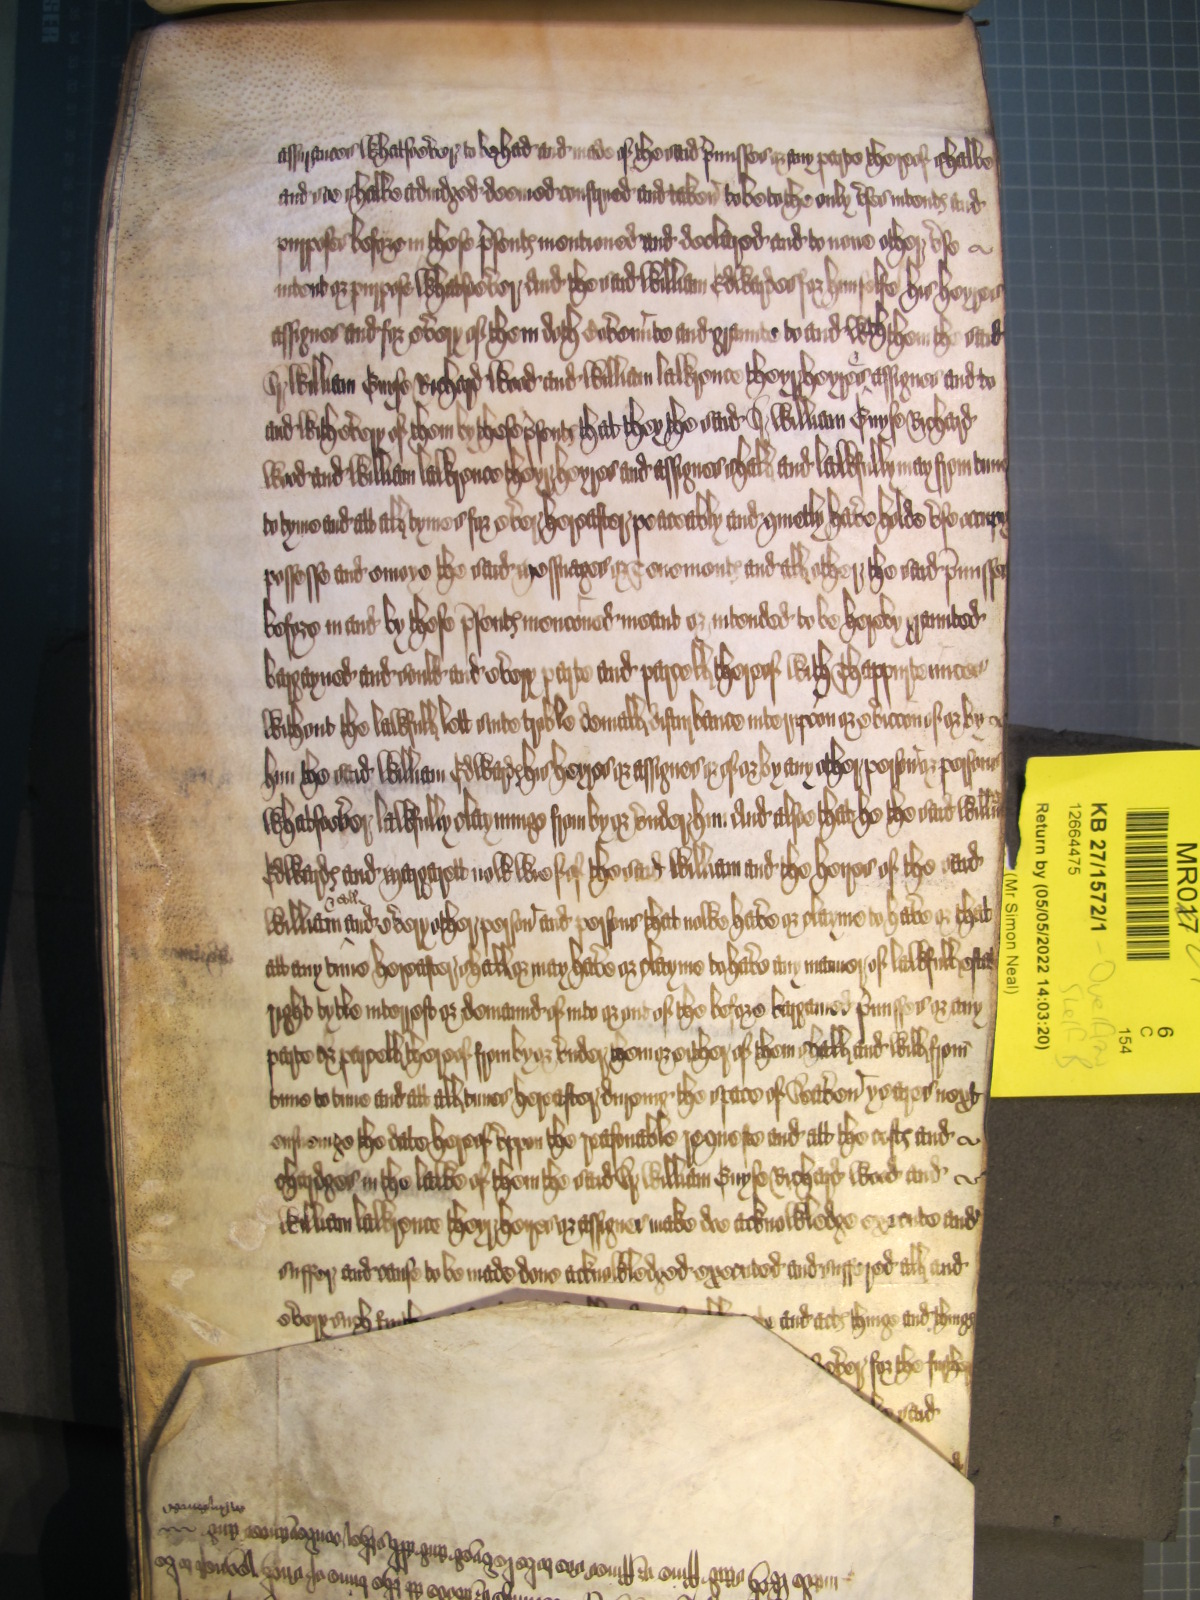 assurances whatsoever to be had and made of the said p'misses or any parte thereof shalbe
and soe shalbe adiudged deemed construed and taken to be to the only vses intents and
purposes before in these p'sents mentioned and declared and to none other vse
intent or purpose whatsoever And the said William Edwardes for himselfe his heyres
assignes and for every of them doth covennte to and graunte to and wth them the said
Sr William Guyse Richard Wood and William Lawrence theyr heyres & assignes and to
and with every of them by these p'sents that they the said Sr William Guyse Richard
Wood and William Lawrence theyr heyres and assignes shall and lawfully may from time
to tyme and att all tymes for ever hereafter peaceably and quietly have holde vse occupy
possesse and enioye the said messuages or Tenements and all other the said p'misses
before in and by these p'sents menconed meant or intended to be hereby graunted
bargayned and sould and every parte and parcell thereof with Thappurtenunces
without the lawfull lett suite troble deniall disturbance interrupcon or eviccon of or by
him the said William Edwards his heyres or assignes or of or by any other person or persons
whatsoever lawfully clayminge from by or vnder him And alsoe that he the said William
Edwards and Margarett now wief of the said William and the heires of the said
William and all & every other person and persons that nowe have or clayme to have or that
att any time hereafter shall or may have or clayme to have any manner of lawfull estate
right tytle interrest or demaund of into or out of the before bargained p'misses or any
parte or parcell thereof from by or vnder them or either of them shall and will from
time to time and att all times hereafter during the space of Seaven yeares next
ensueinge the date hereof vppon the reasonable requeste and att the costs and
chardges in the lawe of them the said Sr William Guyse Richard Wood and
William Lawrence theyr heires or assignes make doe acknowledge execute and
suffer and cause to be made done acknowledged executed and suffered all and
every such and acts thinge and things
for the further
said
MR017
6
C
154
KB 27/1572/1
12664475
Return by (05/05/2022 14:03:20)
(Mr Simon Neal)